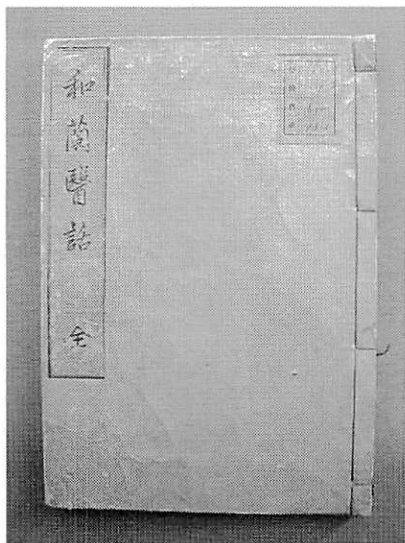 和蘭醫話 全